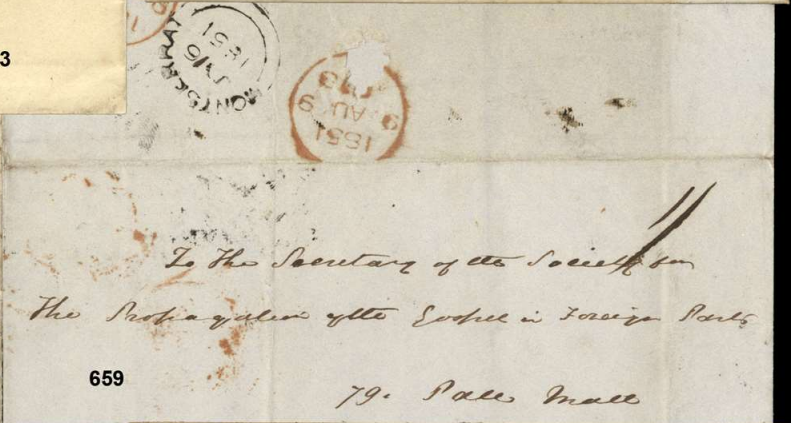 3
MONTSERRAT
JY 16
1851
9 AU 9
1851
To the Secretary of the Society for
The Propagation of the Gospel in Foreign Parts
659
79. Pall Mall